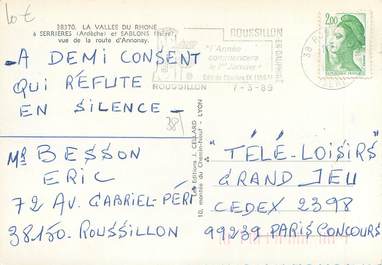 10€
38370. LA VALLEE DU RHONE
à SERRIERES (Ardèche) et SABLONS (Isère)
vue de la route d'Annonay.
- A DEMI CONSENT
QUI RÉFUTE
EN SILENCE -
38
Mr BESSON
ERIC
72 AV. GABRIEL-PÉRI
38150-ROUSSILLON
© Editions J. CELLARD
10, montée du Chemin-Neuf - LYON
ROUSSILLON
EN DAUPHINE
"l'Année
commencera
le 1er Janvier"
Edit de Charles IX
ROUSSILLON
7-3-89
38
2,00
"TÉLÉ-LOISIRS"
GRAND JEU
CEDEX 2398
99239 PARIS CONCOURS